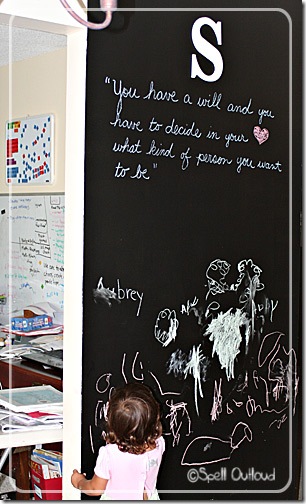 S
"You have a will and you
have to decide in your
what kind of person you want
to be"
Aubrey
©Spell Outloud